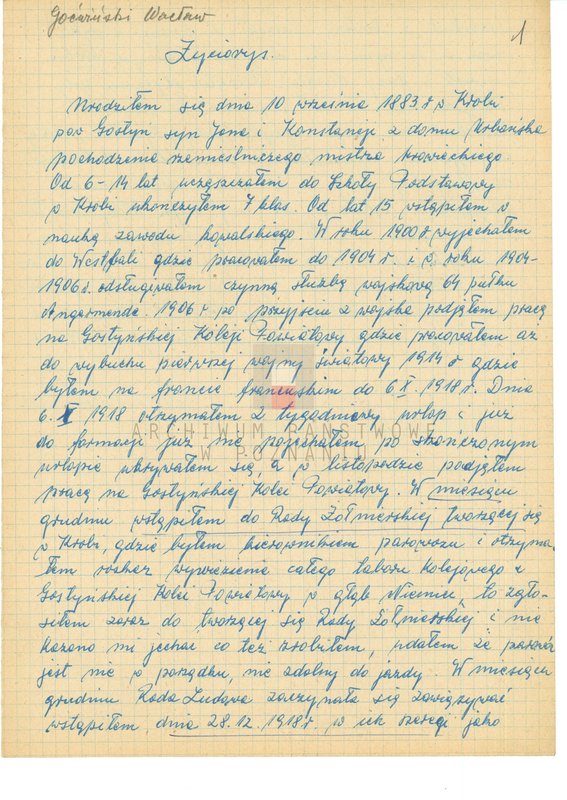 Goćwiński Wacław
1
Życiorys.
Urodziłem się dnia 10 września 1883 r w Krobi
pow Gostyn syn Jana i Konstancji z domu Urbańska
pochodzenie rzemieślniczego mistrza krawieckiego.
Od 6-14 lat uczęszczałem do Szkoły Podstawowy
w Krobi ukończyłem 7 klas. Od lat 15 wstąpiłem w
nauką zawodu kowalskiego. W roku 1900 r wyjechałem
do Westfali gdzie pracowałem do 1904 r. i w roku 1904-
1906 r. odsługiwałem czynną służbę wojskową 64 pułku
Angermende. 1906 r. po przyjściu z wojska podjąłem pracą
na Gostyńskiej Koleji Powiatowy gdzie pracowałem aż
do wybuchu pierwszej wojny światowy 1914 r gdzie
byłem na froncie francuskim do 6.X.1918 r. Dnia
6.X 1918 otrzymałem 2 tygodniowy urlop i już
do formacji już nie pojechałem, po skończonym
urlopie ukrywałem się, a w listopadzie podjąłem
pracą na Gostyńskiej Kolei Powiatowy. W miesiącu
grudniu wstąpiłem do Rady Żołnierskiej tworzącej się
w Krobi, gdzie byłem kierownikiem parowozu i otrzyma-
łem rozkaz wywiezienia całego taboru kolejowego z
Gostyńskiej Kolei Powiatowy w głąb Niemiec, to zgło-
siłem zaraz do tworzącej się Rady Żołnierskiej i nie
kazano mi jechać co też zrobiłem, udałem że parowóz
jest nie w porządku, nie zdolny do jazdy. W miesiącu
grudniu Rada Ludowa zaczynała się zawiązywać
wstąpiłem, dnia 28.12.1918 r. w ich szeregi jako
ARCHIWUM PAŃSTWOWE
W POZNANIU